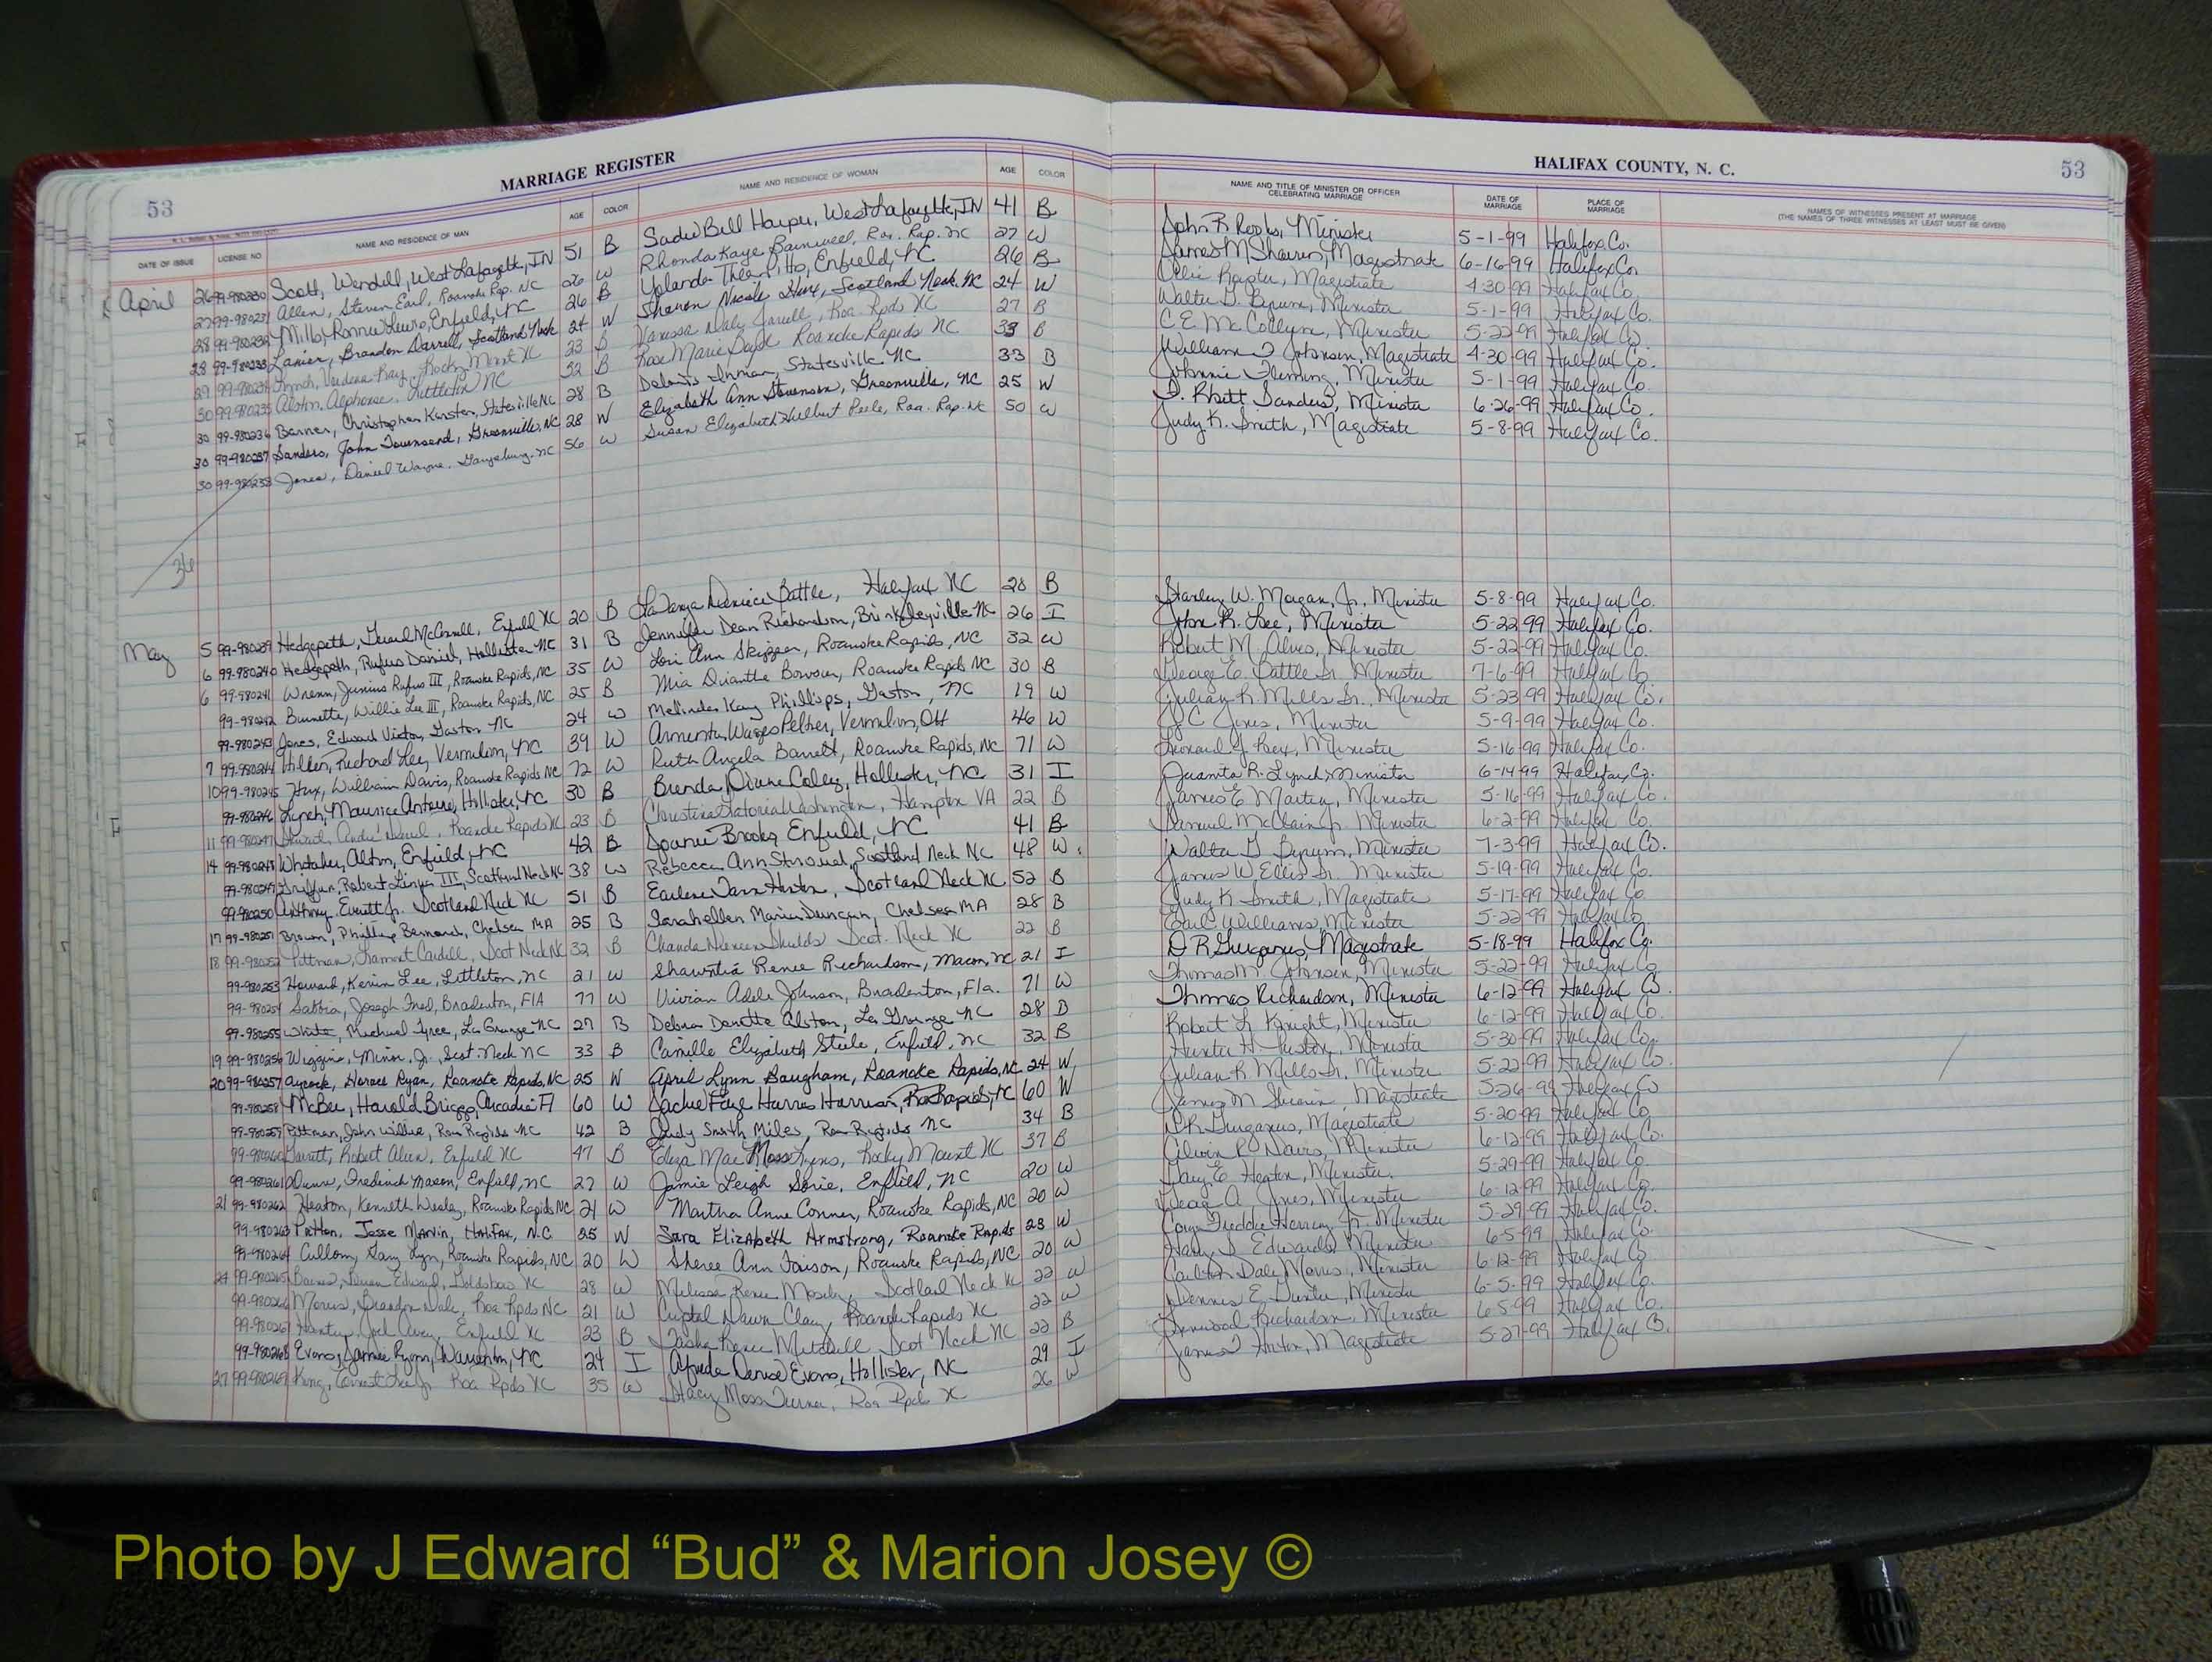 53 MARRIAGE REGISTER HALIFAX COUNTY, N. C. 53
DATE OF ISSUE LICENSE NO NAME AND RESIDENCE OF MAN AGE COLOR NAME AND RESIDENCE OF WOMAN AGE COLOR NAME AND TITLE OF MINISTER OR OFFICER CELEBRATING MARRIAGE DATE OF MARRIAGE PLACE OF MARRIAGE NAMES OF WITNESSES PRESENT AT MARRIAGE (THE NAMES OF THREE WITNESSES AT LEAST MUST BE GIVEN)
April 26 99-980230 Scott, Wendell, West Lafayette, IN 51 B Sadie Bell Harper, West Lafayette, IN 41 B John R Rooks, Minister 5-1-99 Halifax Co.
27 99-980231 Allen, Steven Earl, Roanoke Rap. NC 26 W Rhonda Kaye Barnwell, Roa. Rap. NC 27 W James M Shearin, Magistrate 6-16-99 Halifax Co.
28 99-980232 Mills, Ronnie Lewis, Enfield, NC 26 B Yolanda Pitts, Enfield, NC 26 B Magistrate 4-30-99 Halifax Co.
28 99-980233 Lanier, Brandon Darrell, Scotland Neck 24 W Sharon Nicole Hux, Scotland Neck, NC 24 W Walter G. Byrum, Minister 5-1-99 Halifax Co.
29 99-980234 Lynch, Ray, Rocky Mount NC 23 B Vanessa Jarrell, Roa. Rpds NC 27 B C E McCollum, Minister 5-22-99 Halifax Co.
30 99-980235 Alston, Alphonso, Littleton NC 32 B Rose Marie Boyd Roanoke Rapids NC 33 B William T Johnson, Magistrate 4-30-99 Halifax Co.
30 99-980236 Barner, Christopher Karsten, Statesville NC 28 B Inman, Statesville NC 33 B Johnnie Fleming, Minister 5-1-99 Halifax Co.
30 99-980237 Sanders, John Townsend, Greenville, NC 28 W Elizabeth Ann Stevenson, Greenville, NC 25 W F. Rhett Sanders, Minister 6-26-99 Halifax Co.
30 99-980238 Jones, Daniel Wayne, Garysburg, NC 56 W Susan Elizabeth Hulbert Peele, Roa. Rap. NC 50 W Judy K. Smith, Magistrate 5-8-99 Halifax Co.
36
May 5 99-980239 Hedgepeth, McConnell, Enfield NC 20 B Battle, Halifax NC 20 B Stanley W. Morgan, Jr., Minister 5-8-99 Halifax Co.
6 99-980240 Hedgepeth, Rufus Daniel, Hollister NC 31 B Jennifer Dean Richardson, Brinkleyville NC 26 I John R. Lee, Minister 5-22-99 Halifax Co.
6 99-980241 Wrenn, Junius Rufus III, Roanoke Rapids, NC 35 W Lori Ann Skipper, Roanoke Rapids, NC 32 W Robert M. Minister 5-22-99 Halifax Co.
99-980242 Burnette, Willie Lee III, Roanoke Rapids, NC 25 B Mia Dianthe Bowser, Roanoke Rapids NC 30 B George E. Battle Sr. Minister 7-6-99 Halifax Co.
99-980243 Jones, Edward Victor, Gaston NC 24 W Melinda Kay Phillips, Gaston, NC 19 W Julian R. Mills Sr., Minister 5-23-99 Halifax Co.
7 99-980244 Richard Lee, Vermilion, NC 39 W Peltier, Vermilion, OH 46 W J C Jones, Minister 5-9-99 Halifax Co.
10 99-980245 Hux, William Davis, Roanoke Rapids NC 72 W Ruth Angela Barrett, Roanoke Rapids, NC 71 W Leonard G. Minister 5-16-99 Halifax Co.
99-980246 Lynch, Maurice Antoine, Hollister, NC 30 B Brenda Diane Coley, Hollister, NC 31 I Juanita R. Lynch, Minister 6-14-99 Halifax Co.
11 99-980247 Roanoke Rapids NC 23 B Christina Washington, Hampton VA 22 B James E Martin, Minister 5-16-99 Halifax Co.
14 99-980248 Whitaker, Alton, Enfield, NC 42 B Joanie Brooks, Enfield, NC 41 B Samuel McClain Jr. Minister 6-2-99 Halifax Co.
99-980249 Griffin, Robert III, Scotland Neck NC 38 W Rebecca Ann Stroud, Scotland Neck NC 48 W Walter G Byrum, Minister 7-3-99 Halifax Co.
99-980250 Anthony, Everett Jr. Scotland Neck NC 51 B Earlene Scotland Neck NC 52 B James W Ellis Sr. Minister 5-19-99 Halifax Co.
17 99-980251 Brown, Phillip Bernard, Chelsea MA 25 B Sarahellen Maria Duncan, Chelsea MA 28 B Judy K Smith, Magistrate 5-17-99 Halifax Co.
18 99-980252 Pittman, Lamont Cardell, Scot Neck NC 32 B Shields Scot. Neck NC 22 B Earl Williams, Minister 5-22-99 Halifax Co
99-980253 Howard, Kevin Lee, Littleton, NC 21 W Renee Richardson, Macon, NC 21 I D R Gurganus, Magistrate 5-18-99 Halifax Co.
99-980254 Joseph Fred, Bradenton, FlA 77 W Vivian Adele Johnson, Bradenton, Fla. 71 W Thomas M. Johnson, Minister 5-22-99 Halifax Co.
99-980255 White, Michael Tyree, La Grange NC 27 B Debra Donette Alston, La Grange NC 28 B Thomas Richardson, Minister 6-12-99 Halifax Co.
19 99-980256 Wiggins, Minor, Jr., Scot. Neck NC 33 B Camille Elizabeth Steele, Enfield, NC 32 B Robert L. Knight, Minister 6-12-99 Halifax Co.
20 99-980257 Aycock, Horace Ryan, Roanoke Rapids, NC 25 W April Lynn Baugham, Roanoke Rapids, NC 24 W Hunter H. Minister 5-30-99 Halifax Co.
99-980258 McBee, Harold Briggs, Arcadia Fl 60 W Jackie Faye Harris Harrison, Roa Rapids, NC 60 W Julian R Mills Sr. Minister 5-22-99 Halifax Co.
99-980259 Pittman, John Willie, Roa Rapids NC 42 B Judy Smith Miles, Roa Rapids NC 34 B James M Shearin, Magistrate 5-26-99 Halifax Co
99-980260 Garrett, Robert Allen, Enfield NC 47 B Eliza Mae Moss Lyons, Rocky Mount NC 37 B D R Gurganus, Magistrate 5-20-99 Halifax Co
99-980261 Dunn, Frederick Mason, Enfield, NC 27 W Jamie Leigh Enfield, NC 20 W Davis, Minister 6-12-99 Halifax Co.
21 99-980262 Heaton, Kenneth Wesley, Roanoke Rapids NC 21 W Martha Anne Conner, Roanoke Rapids, NC 20 W Gary E Heaton, Minister 5-29-99 Halifax Co
99-980263 Patton, Jesse Marvin, Halifax, N.C. 25 W Sara Elizabeth Armstrong, Roanoke Rapids 23 W A. Jones, Minister 6-12-99 Halifax Co.
99-980264 Cullom, Gary Lynn, Roanoke Rapids, NC 20 W Sheree Ann Faison, Roanoke Rapids, NC 20 W Freddie Harvey, Jr. Minister 5-29-99 Halifax Co.
24 99-980265 Edward, Goldsboro NC 28 W Melissa Renee Mosley, Scotland Neck NC 22 W Harry S Edwards, Minister 6-5-99 Halifax Co.
99-980266 Morris, Brandon Dale, Roa Rpds NC 21 W Crystal Dawn Clary, Roanoke Rapids NC 22 W Carlton Dale Morris, Minister 6-12-99 Halifax Co
99-980267 Joel Enfield NC 23 B Tasha Renee Mitchell Scot Neck NC 22 B Dennis E. Minister 6-5-99 Halifax Co.
99-980268 Evans, Jamie Ryan, Warrenton, NC 24 I Alfreda Denise Evans, Hollister, NC 29 I Richardson, Minister 6-5-99 Halifax Co.
27 99-980269 King, Ernest Lee Jr. Roa Rpds NC 35 W Stacy Moss Turner, Roa Rpds NC 26 W James T Magistrate 5-27-99 Halifax Co.
Photo by J Edward “Bud” & Marion Josey ©